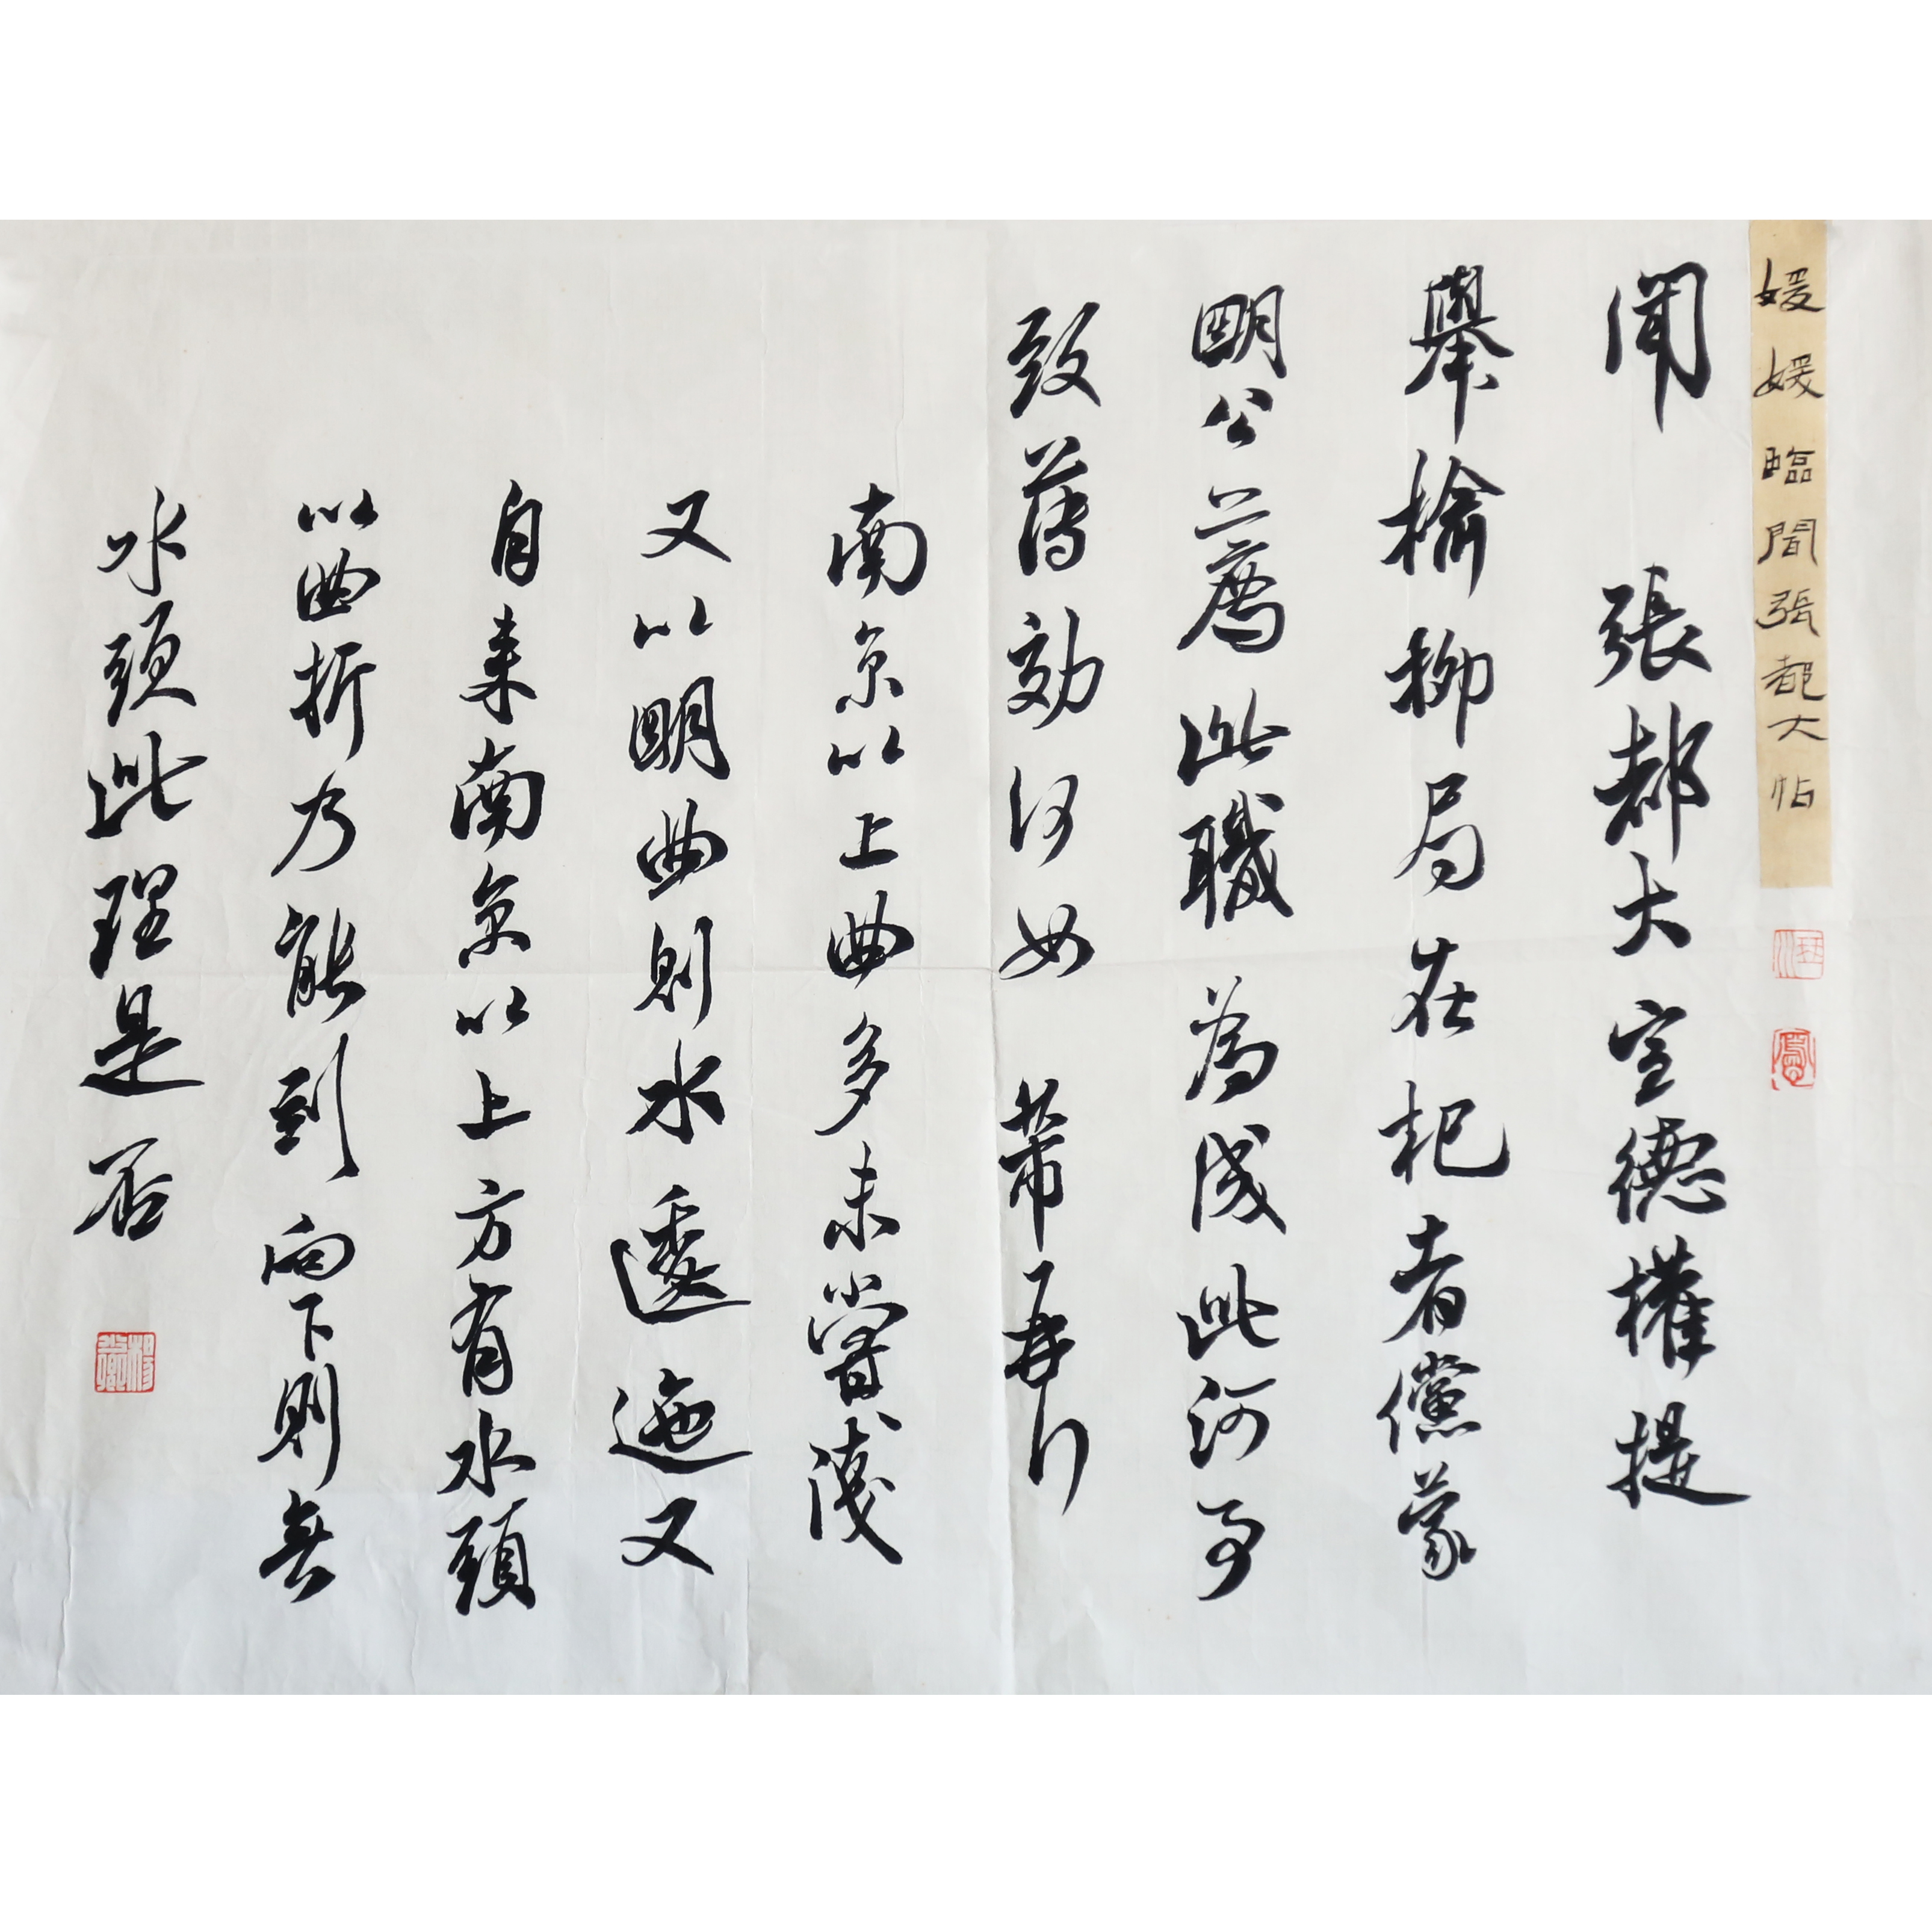 媛媛臨聞張都大帖
聞 張都大宣德權提
舉榆柳局在杞者儻蒙
明公薦此職為成此河事
致薄効何如 芾再行
南京以上曲多未嘗淺
又以明曲則水逶迤又
自来南京以上方有水頭
以曲折乃能到向下則無
水頭此理是否